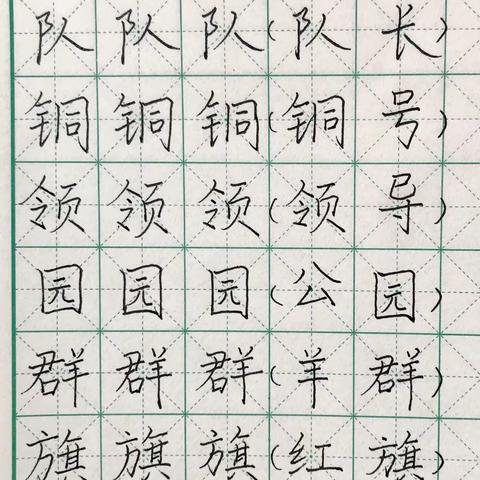 队队队(队长)
铜铜铜(铜号)
领领领(领导)
园园园(公园)
群群群(羊群)
旗旗旗(红旗